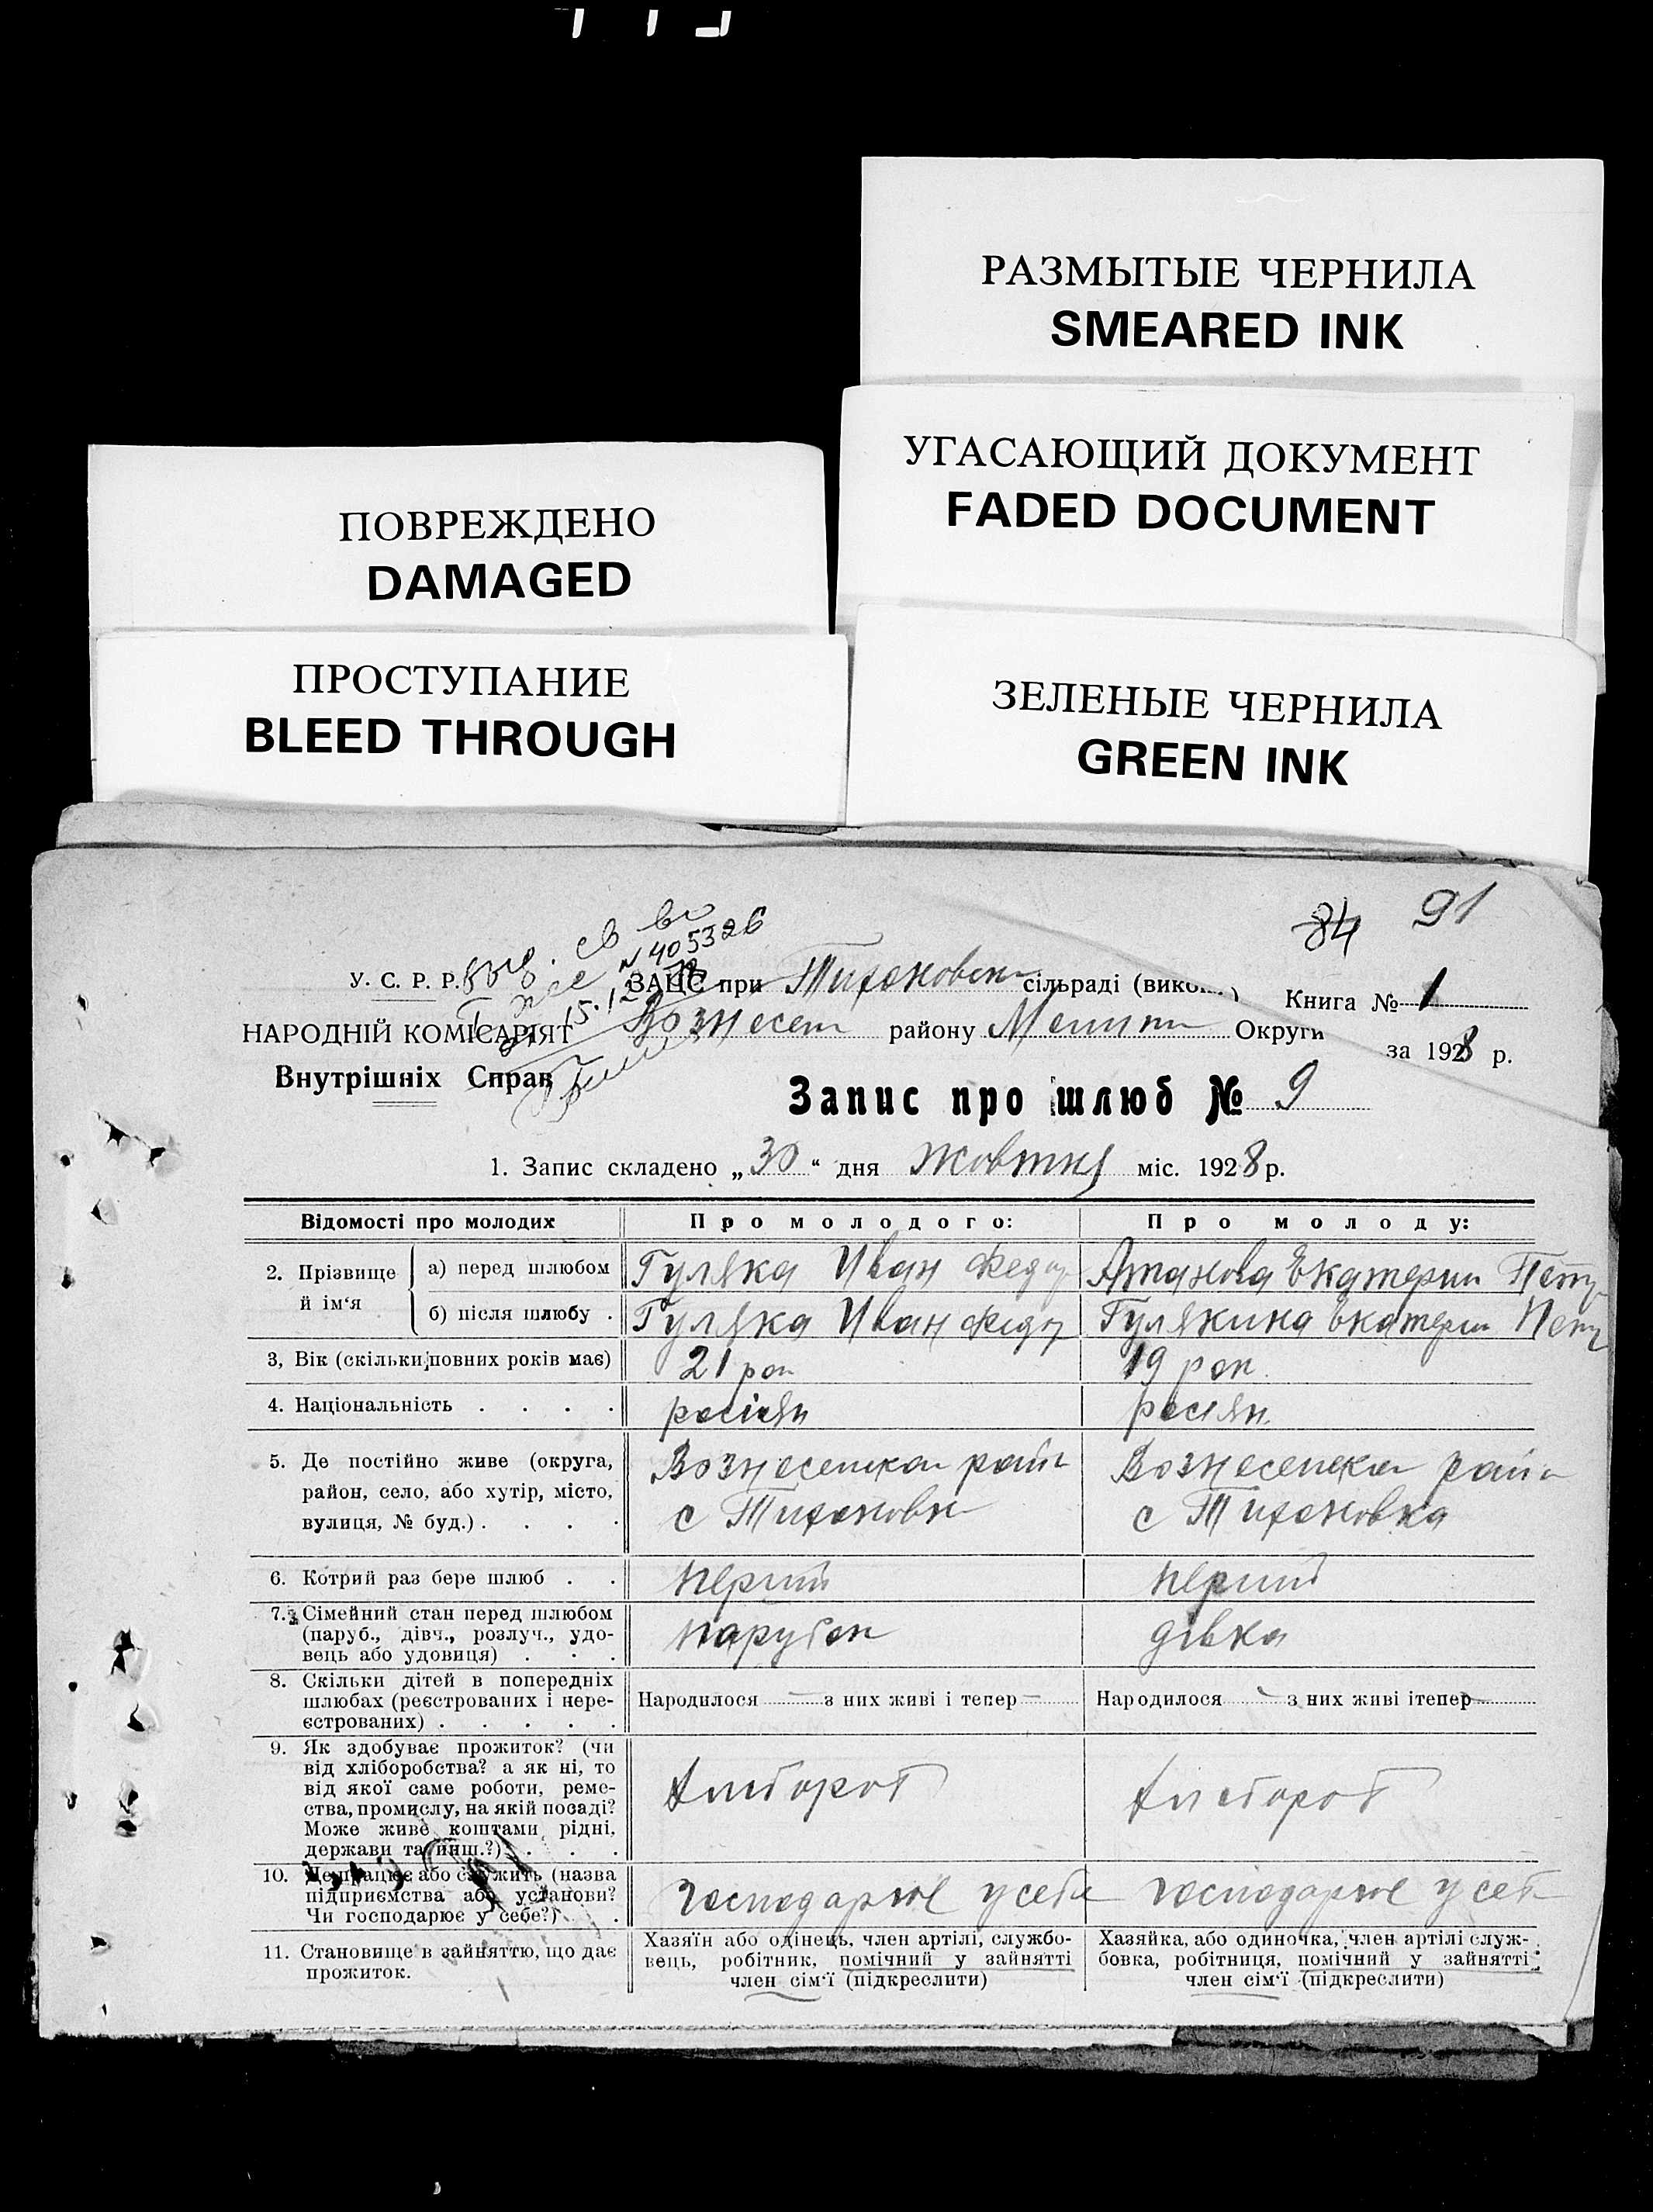 РАЗМЫТЫЕ ЧЕРНИЛА
SMEARED INK
УГАСАЮЩИЙ ДОКУМЕНТ
FADED DOCUMENT
ПОВРЕЖДЕНО
DAMAGED
ПРОСТУПАНИЕ
BLEED THROUGH
ЗЕЛЕНЫЕ ЧЕРНИЛА
GREEN INK
84 91
№ 405326
У. С. Р. Р. ЗАПС при Тихоновск сільраді Книга № 1
НАРОДНІЙ КОМІСАРІЯТ Вознесен району Мелит Округи за 1928 р.
Внутрішніх Справ
Запис про шлюб № 9
1. Запис складено „30“ дня жовтня міс. 1928 р.
Відомості про молодих Про молодого: Про молоду:
2. Прізвище й ім‘я а) перед шлюбом Гуляка Иван Федор Атанова Екатерин Петр
б) після шлюбу . Гуляка Иван Федор Гулякина Екатерин Петр
3, Вік (скільки повних років має) 21 рок 19 рок
4. Національність . . . . росіян росіян
5. Де постійно живе (округа, Вознесенскои район Вознесенскои район
район, село, або хутір, місто, с Тихоновк с Тихоновка
вулиця, № буд.) . . . .
6. Котрий раз бере шлюб . . перший перший
7. Сімейний стан перед шлюбом
(паруб., дівч., розлуч., удо- парубок дівка
вець або удовиця) . . .
8. Скільки дітей в попередніх
шлюбах (реєстрованих і нере- Народилося — з них живі і тепер — Народилося — з них живі і тепер —
єстрованих) . . . . .
9. Як здобуває прожиток? (чи
від хліборобства? а як ні, то
від якої саме роботи, реме- хлібороб хлібороб
ства, промислу, на якій посаді?
Може живе коштами рідні,
держави та инш.?) . . .
10. Де працює або служить (назва
підприємства або установи? господарює у себе господарює у себе
Чи господарює у себе?) . .
11. Становище в зайняттю, що дає
прожиток.
Хазяїн або одінець, член артілі, службо-
вець, робітник, помічний у зайнятті
член сім‘ї (підкреслити)
Хазяйка, або одиночка, член артілі служ-
бовка, робітниця, помічний у зайнятті
член сім‘ї (підкреслити)